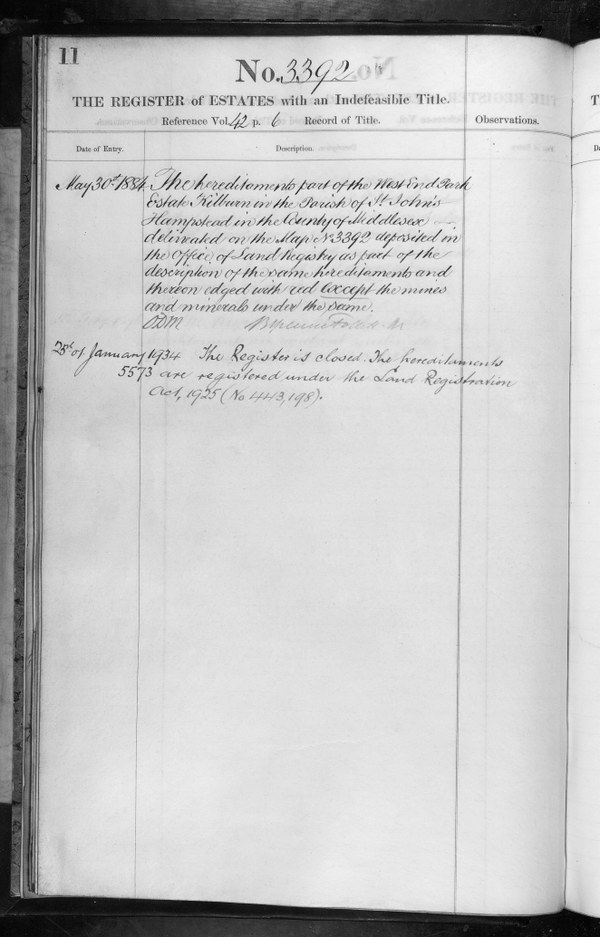 11
No. 3392
THE REGISTER of ESTATES with an Indefeasible Title.
Reference Vol. 42 p. 6 Record of Title.
Observations.
Date of Entry.
Description.
May 30th 1884 The hereditaments part of the West End Park
Estate Kilburn in the Parish of St. John's
Hampstead in the County of Middlesex
delineated on the Map No 3392 deposited in
the Office of Land Registry as part of the
description of the same hereditaments and
thereon edged with red except the mines
and minerals under the same.
of January 1934 The Register is closed. The hereditaments
5573 are registered under the Land Registration
Act, 1925 (No 443,198).